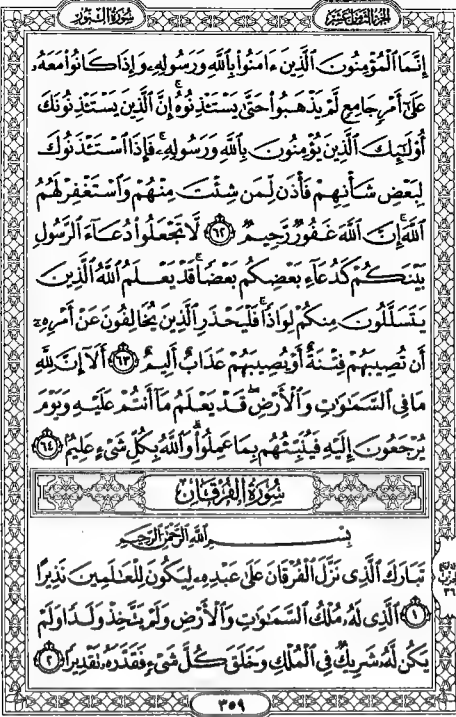 الجزء الثامن عشر
سورة النور
إِنَّمَا ٱلْمُؤْمِنُونَ ٱلَّذِينَ ءَامَنُوا۟ بِٱللَّهِ وَرَسُولِهِۦ وَإِذَا كَانُوا۟ مَعَهُۥ
عَلَىٰٓ أَمْرٍ جَامِعٍ لَّمْ يَذْهَبُوا۟ حَتَّىٰ يَسْتَـْٔذِنُوهُ ۚ إِنَّ ٱلَّذِينَ يَسْتَـْٔذِنُونَكَ
أُو۟لَٰٓئِكَ ٱلَّذِينَ يُؤْمِنُونَ بِٱللَّهِ وَرَسُولِهِۦ ۚ فَإِذَا ٱسْتَـْٔذَنُوكَ
لِبَعْضِ شَأْنِهِمْ فَأْذَن لِّمَن شِئْتَ مِنْهُمْ وَٱسْتَغْفِرْ لَهُمُ
ٱللَّهَ ۚ إِنَّ ٱللَّهَ غَفُورٌ رَّحِيمٌ ٦٢ لَّا تَجْعَلُوا۟ دُعَآءَ ٱلرَّسُولِ
بَيْنَكُمْ كَدُعَآءِ بَعْضِكُم بَعْضًا ۚ قَدْ يَعْلَمُ ٱللَّهُ ٱلَّذِينَ
يَتَسَلَّلُونَ مِنكُمْ لِوَاذًا ۚ فَلْيَحْذَرِ ٱلَّذِينَ يُخَالِفُونَ عَنْ أَمْرِهِۦٓ
أَن تُصِيبَهُمْ فِتْنَةٌ أَوْ يُصِيبَهُمْ عَذَابٌ أَلِيمٌ ٦٣ أَلَآ إِنَّ لِلَّهِ
مَا فِى ٱلسَّمَٰوَٰتِ وَٱلْأَرْضِ ۖ قَدْ يَعْلَمُ مَآ أَنتُمْ عَلَيْهِ وَيَوْمَ
يُرْجَعُونَ إِلَيْهِ فَيُنَبِّئُهُم بِمَا عَمِلُوا۟ ۗ وَٱللَّهُ بِكُلِّ شَىْءٍ عَلِيمٌۢ ٦٤
سُورَةُ الفُرْقَان
بِسْمِ ٱللَّهِ ٱلرَّحْمَٰنِ ٱلرَّحِيمِ
تَبَارَكَ ٱلَّذِى نَزَّلَ ٱلْفُرْقَانَ عَلَىٰ عَبْدِهِۦ لِيَكُونَ لِلْعَٰلَمِينَ نَذِيرًا
١ ٱلَّذِى لَهُۥ مُلْكُ ٱلسَّمَٰوَٰتِ وَٱلْأَرْضِ وَلَمْ يَتَّخِذْ وَلَدًا وَلَمْ
يَكُن لَّهُۥ شَرِيكٌ فِى ٱلْمُلْكِ وَخَلَقَ كُلَّ شَىْءٍ فَقَدَّرَهُۥ تَقْدِيرًا ٢
الحزب
٣٦
٣٥٩